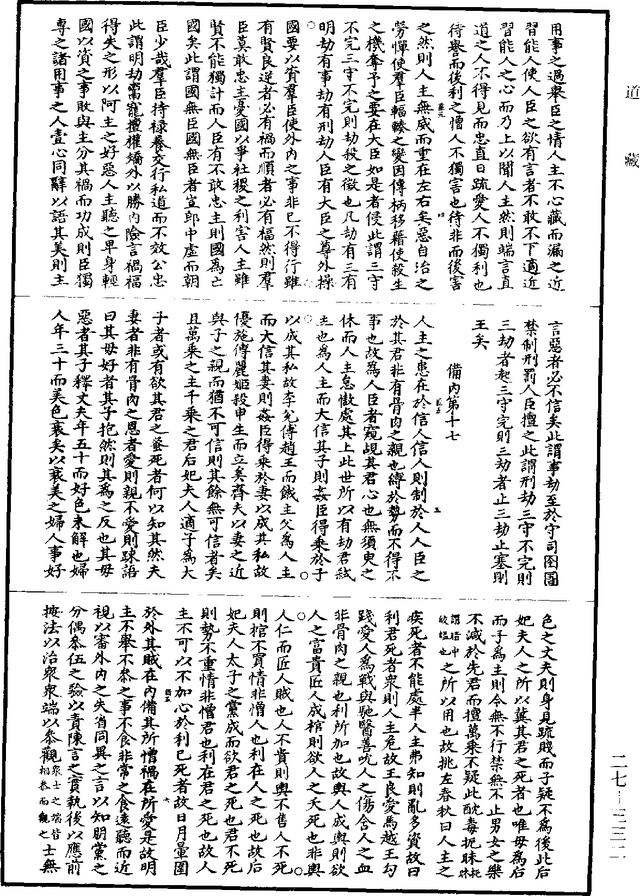 道藏
用事之過舉臣之情人主不心藏而漏之近
習能人使人臣之欲有言者不敢不下適近
習能人之心而乃上以聞人主然則端言直
道之人不得見而忠直日疏愛人不獨利也
待譽而後利之憎人不獨害也待非而後害
之然則人主無威而重在左右矣惡自治之
勞憚使羣臣輻輳之變因傳柄移藉使殺生
之機奪予之要在大臣如是者侵此謂三守
不完三守不完則劫殺之徵也凡劫有三有
明劫有事劫有刑劫人臣有大臣之尊外操
國要以資羣臣使外內之事非已不得行雖
有賢良逆者必有禍而順者必有福然則羣
臣莫敢忠主憂國以爭社稷之利害人主雖
賢不能獨計而人臣有不敢忠主則國為亡
國矣此謂國無臣國無臣者豈郎中虛而朝
臣少哉羣臣持祿養交行私道而不效公忠
此謂明劫鬻寵擅權矯外以勝內險言禍福
得失之形以阿主之好惡人主聽之卑身輕
國以資之事敗與主分其禍而功成則臣獨
專之諸用事之人壹心同辭以語其美則主
言惡者必不信矣此謂事劫至於守司囹圄
禁制刑罰人臣擅之此謂刑劫三守不完則
三劫者起三守完則三劫者止三劫止塞則
王矣
備內第十七
人主之患在於信人信人則制於人人臣之
於其君非有骨肉之親也縛於勢而不得不
事也故為人臣者窺覘其君心也無須臾之
休而人主怠慠處其上此世所以有劫君弒
主也為人主而大信其子則姦臣得乘於子
以成其私故李兌傅趙王而餓主父為人主
而大信其妻則姦臣得乘於妻以成其私故
優施傅麗姬殺申生而立奚齊夫以妻之近
與子之親而猶不可信則其餘無可信者矣
且萬乘之主千乘之君后妃夫人適子為大
子者或有欲其君之蚤死者何以知其然夫
妻者非有骨肉之恩者愛則親不愛則疎語
曰其母好者其子抱然則其為之反也其母
惡者其子釋丈夫年五十而好色未解也婦
人年三十而美色衰矣以衰美之婦人事好
色之丈夫則身見疏賤而子疑不為後此后
妃夫人之所以冀其君之死者也唯母為后
而子為主則令無不行禁無不止男女之樂
不減於先君而擅萬乘不疑此酖毒扼昧
之所以用也故挑左春秋曰人主之
疾死者不能處半人主弗知則亂多資故曰
利君死者衆則人主危故王良愛馬越王勾
踐愛人為戰與馳醫善吮人之傷含人之血
非骨肉之親也利所加也故輿人成輿則欲
人之富貴匠人成棺則欲人之夭死也非輿
人仁而匠人賊也人不貴則輿不售人不死
則棺不買情非憎人也利在人之死也故后
妃夫人太子之黨成而欲君之死也君不死
則勢不重情非憎君也利在君之死也故人
主不可以不加心於利已死者故日月暈圍
於外其賊在內備其所憎禍在所愛是故明
主不舉不叅之事不食非常之食遠聽而近
視以審外內之失省同異之言以知朋黨之
分偶叅伍之驗以責陳言之實執後以應前
按法以治衆衆端以叅觀 士無
二七-三三二